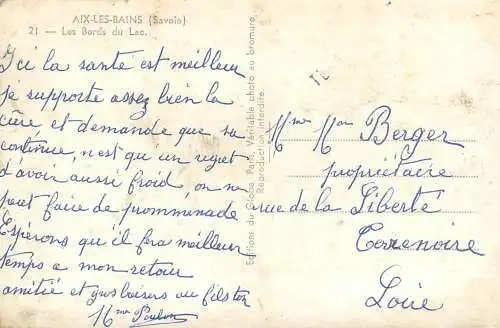 AIX-LES-BAINS (Savoie)
21 — Les Bords du Lac.
Ici la santé est meilleur
je supporte assez bien la
cûre et demande que sa
continue, n'est qu'un regret
d'avoir aussi froid, on ne
peut faire de prommenade
Espérons qu'il fera meilleur
temps a mon retour
amitié et gros baisers au fiston
Mme
Editions du Globe, Paris, Véritable photo au bromure.
Reproduction interdite.
Mme Berger
propriétaire
rue de la Liberté
Terrenoire
Loire